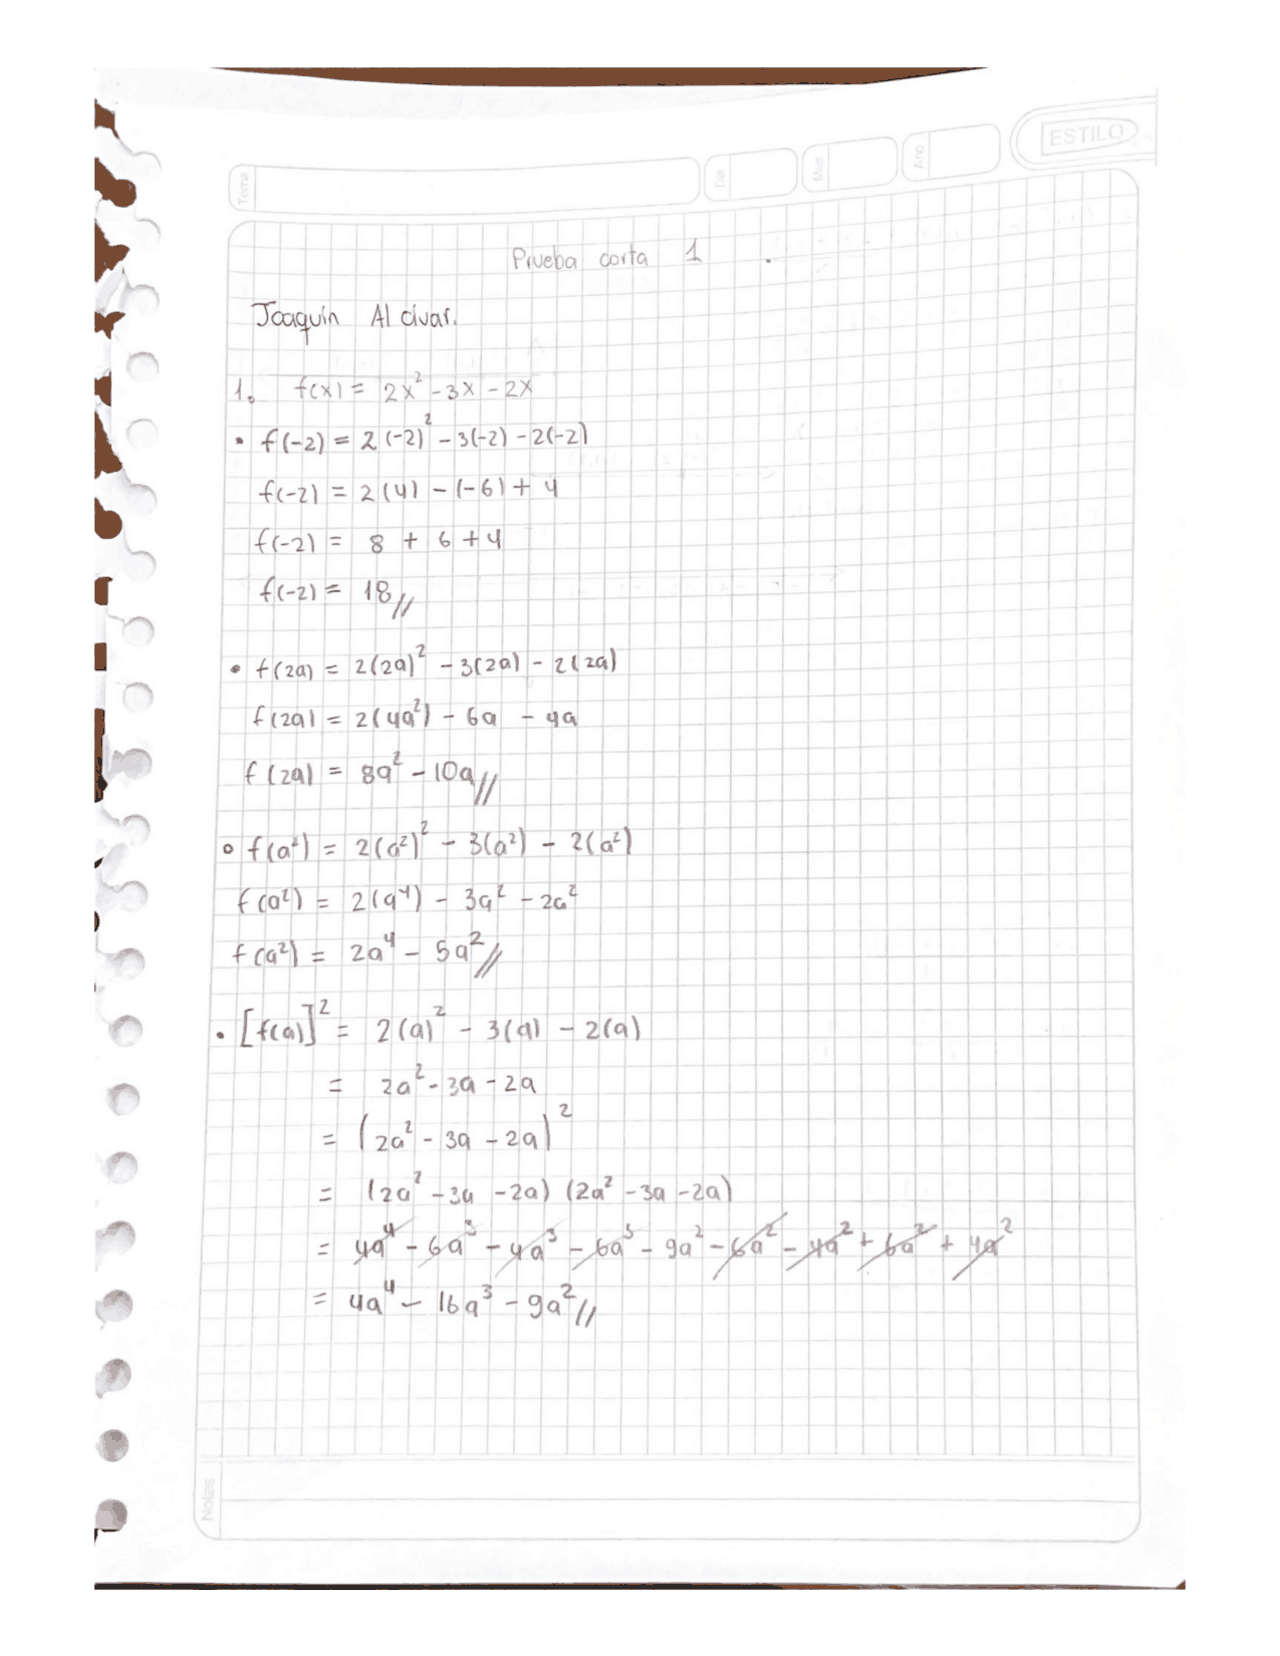 ESTILO
Tema Día Mes Año
Prueba corta 1 .
Joaquín Alcívar.
1. f(x) = 2x² - 3x - 2x
• f(-2) = 2(-2)² - 3(-2) - 2(-2)
f(-2) = 2(4) - (-6) + 4
f(-2) = 8 + 6 + 4
f(-2) = 18//
• f(2a) = 2(2a)² - 3(2a) - 2(2a)
f(2a) = 2(4a²) - 6a - 4a
f(2a) = 8a² - 10a//
• f(a²) = 2(a²)² - 3(a²) - 2(a²)
f(a²) = 2(a⁴) - 3a² - 2a²
f(a²) = 2a⁴ - 5a²//
• [f(a)]² = 2(a)² - 3(a) - 2(a)
= 2a² - 3a - 2a
= (2a² - 3a - 2a)²
= (2a² - 3a - 2a) (2a² - 3a - 2a)
= 4a⁴ - 6a³ - 4a³ - 6a³ - 9a² - 6a² - 4a² + 6a² + 4a²
= 4a⁴ - 16a³ - 9a²//
Notas